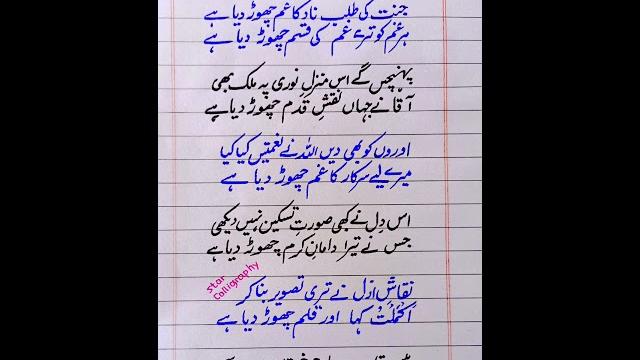 جنت کی طلب نار کا غم چھوڑ دیا ہے
ہر غم کو ترے غم کی قسم چھوڑ دیا ہے
پہنچیں گے اس منزلِ نوری پہ ملک بھی
آقا نے جہاں نقشِ قدم چھوڑ دیا ہے
اوروں کو بھی دیں اللہ نے نعمتیں کیا کیا
میرے لیے سرکار کا غم چھوڑ دیا ہے
اس دل نے کبھی صورتِ تسکین نہیں دیکھی
جس نے تیرا دامانِ کرم چھوڑ دیا ہے
Star
Calligraphy
نقاشِ ازل نے تری تصویر بنا کر
اَکْمَلْتُ کہا اور قلم چھوڑ دیا ہے